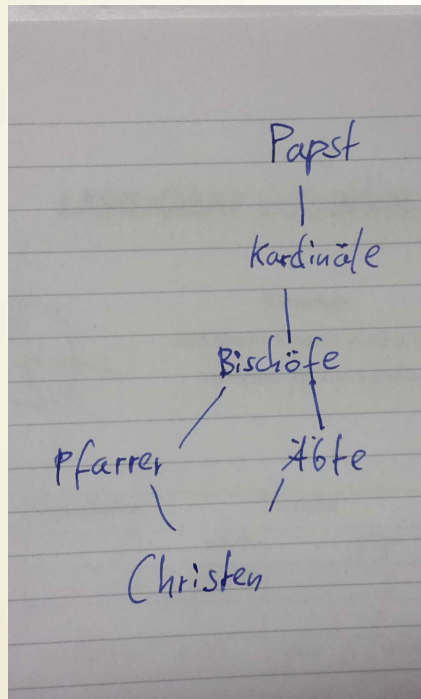 Papst
Kardinäle
Bischöfe
Pfarrer Äbte
Christen